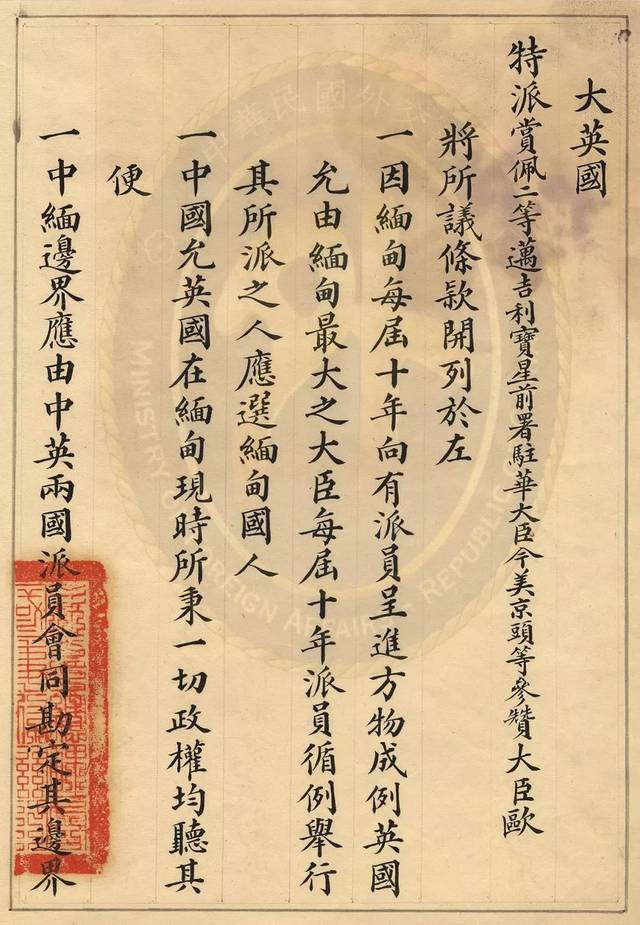 大英國
特派賞佩二等邁吉利寶星前署駐華大臣今美京頭等參贊大臣歐
將所議條款開列於左
一因緬甸每屆十年向有派員呈進方物成例英國
允由緬甸最大之大臣每屆十年派員循例舉行
其所派之人應選緬甸國人
一中國允英國在緬甸現時所秉一切政權均聽其
便
一中緬邊界應由中英兩國派員會同勘定其邊界
中華民國外交
MINISTRY OF FOREIGN AFFAIRS REPUBLIC